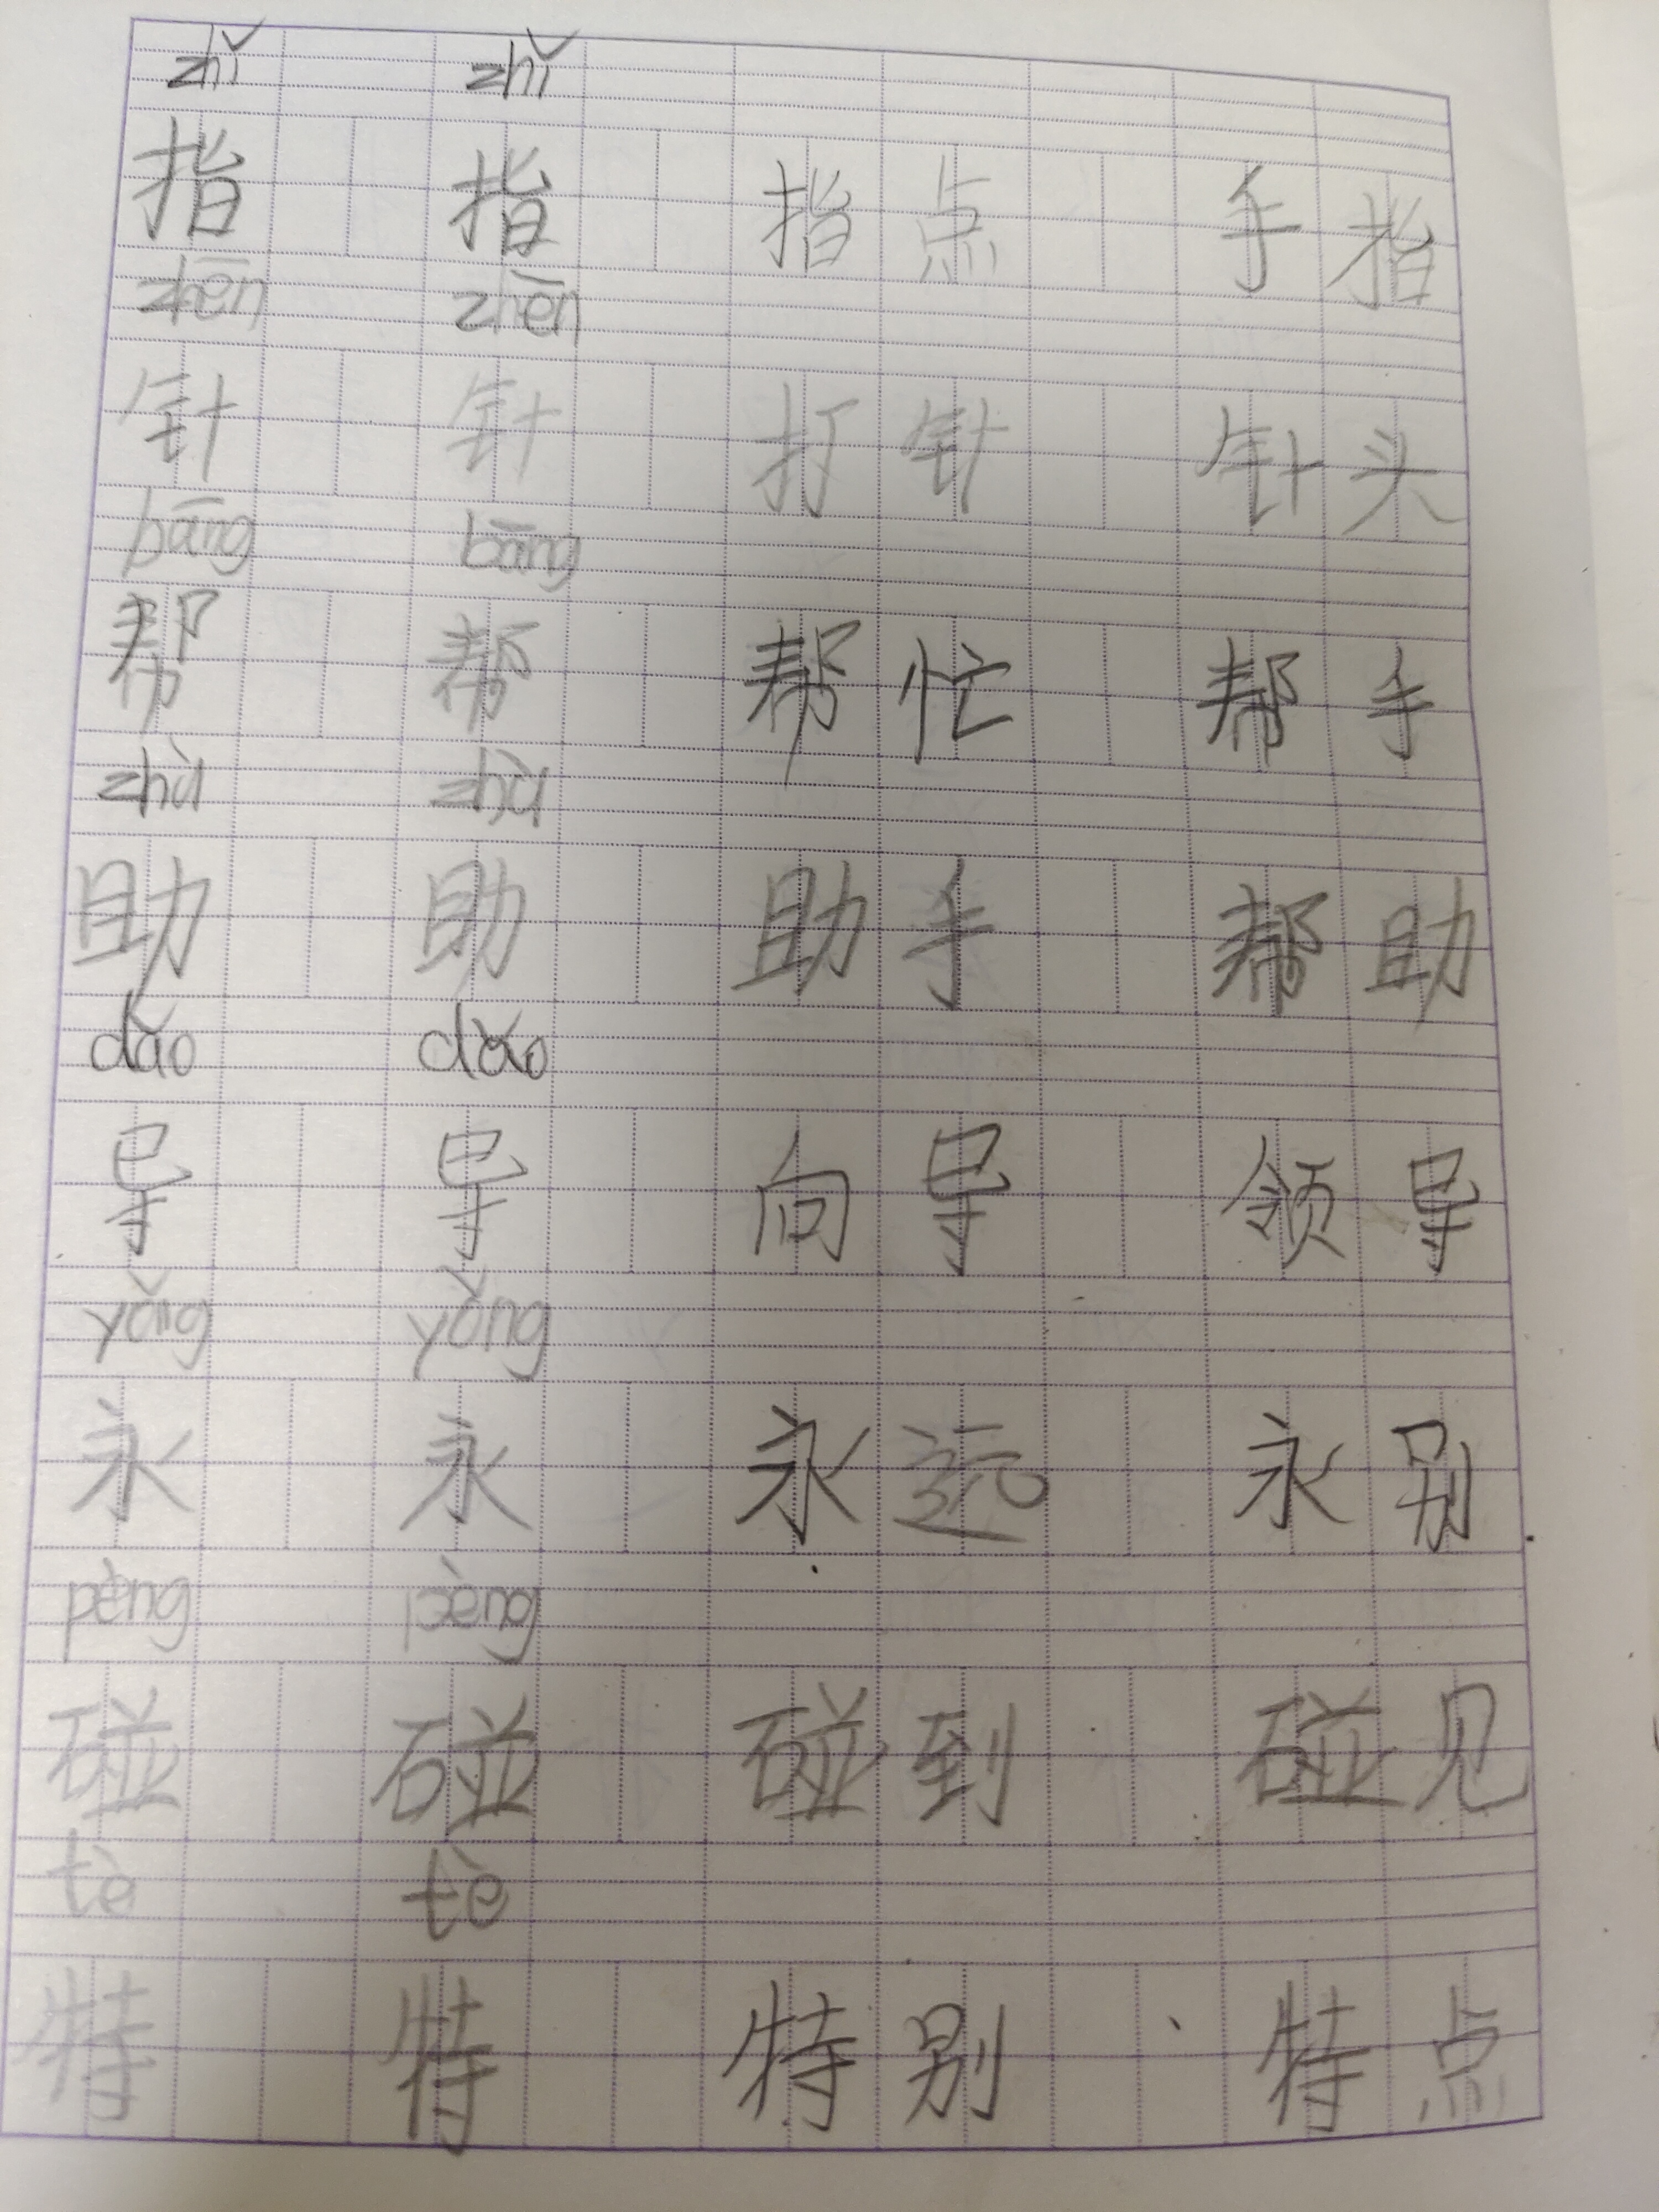 zhǐ zhǐ
指 指 指点 手指
zhēn zhēn
针 针 打针 针头
bāng bāng
帮 帮 帮忙 帮手
zhù zhù
助 助 助手 帮助
dǎo dǎo
导 导 向导 领导
yǒng yǒng
永 永 永远 永别
pèng pèng
碰 碰 碰到 碰见
tè tè
特 特 特别 特点